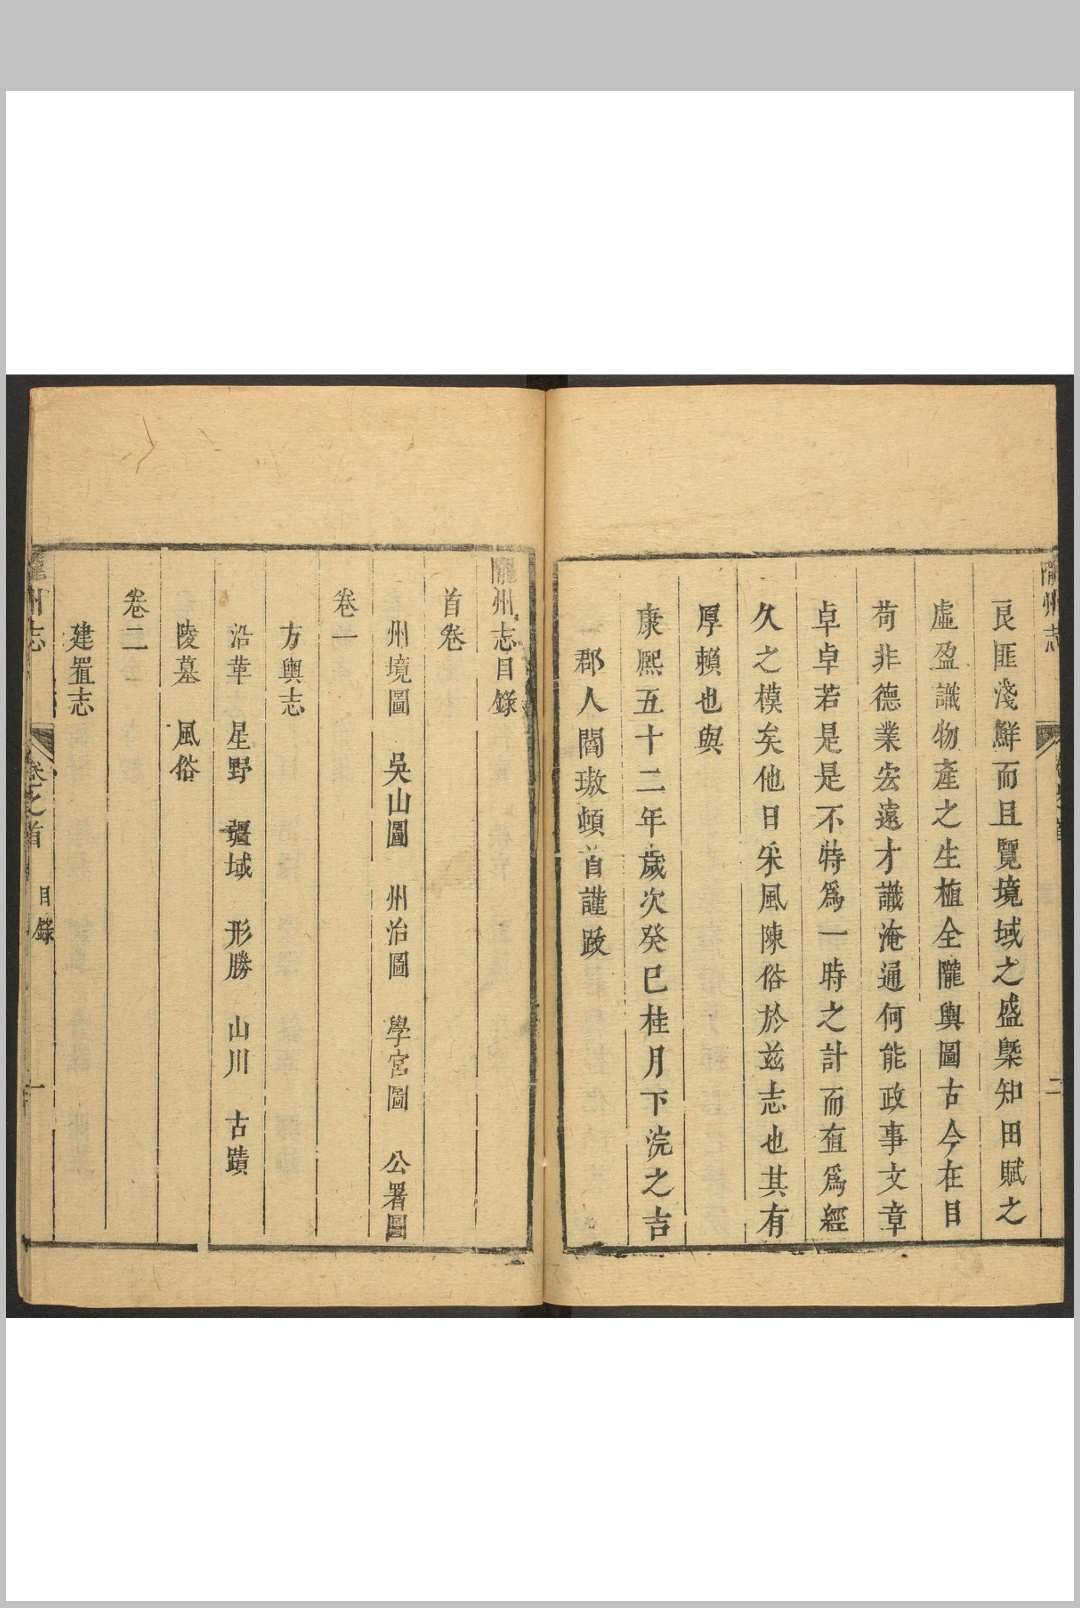 隴州志
二
良匪淺鮮而且覽境域之盛槩知田賦之
虛盈識物產之生植全隴輿圖古今在目
苟非德業宏遠才識淹通何能政事文章
卓卓若是是不特爲一時之計而直爲經
久之模矣他日采風陳俗於兹志也其有
厚賴也與
康熙五十二年歲次癸巳桂月下浣之吉
郡人閻璈頓首謹跋
隴州志目錄
首卷
州境圖 吳山圖 州治圖 學宮圖 公署圖
卷一
方輿志
沿革 星野 疆域 形勝 山川 古蹟
陵墓 風俗
卷二
建置志
隴州志 卷之首 目錄 一